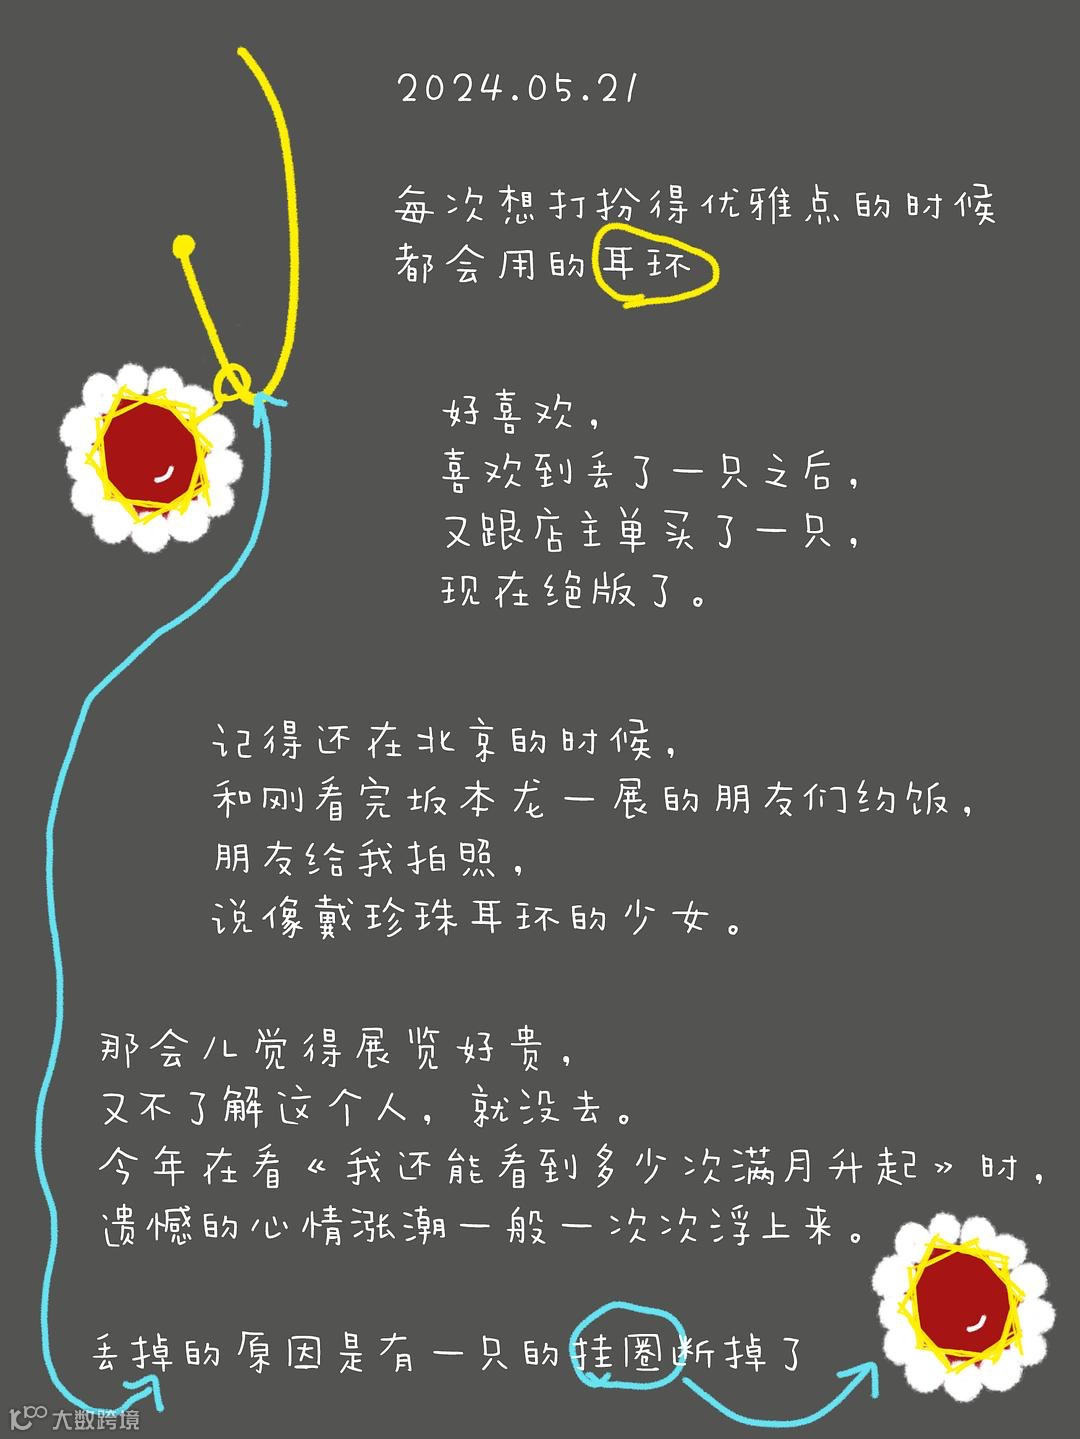 2024.05.21
每次想打扮得优雅点的时候
都会用的耳环
好喜欢，
喜欢到丢了一只之后，
又跟店主单买了一只，
现在绝版了。
记得还在北京的时候，
和刚看完坂本龙一展的朋友们约饭，
朋友给我拍照，
说像戴珍珠耳环的少女。
那会儿觉得展览好贵，
又不了解这个人，就没去。
今年在看《我还能看到多少次满月升起》时，
遗憾的心情涨潮一般一次次浮上来。
丢掉的原因是有一只的挂圈断掉了
大数跨境